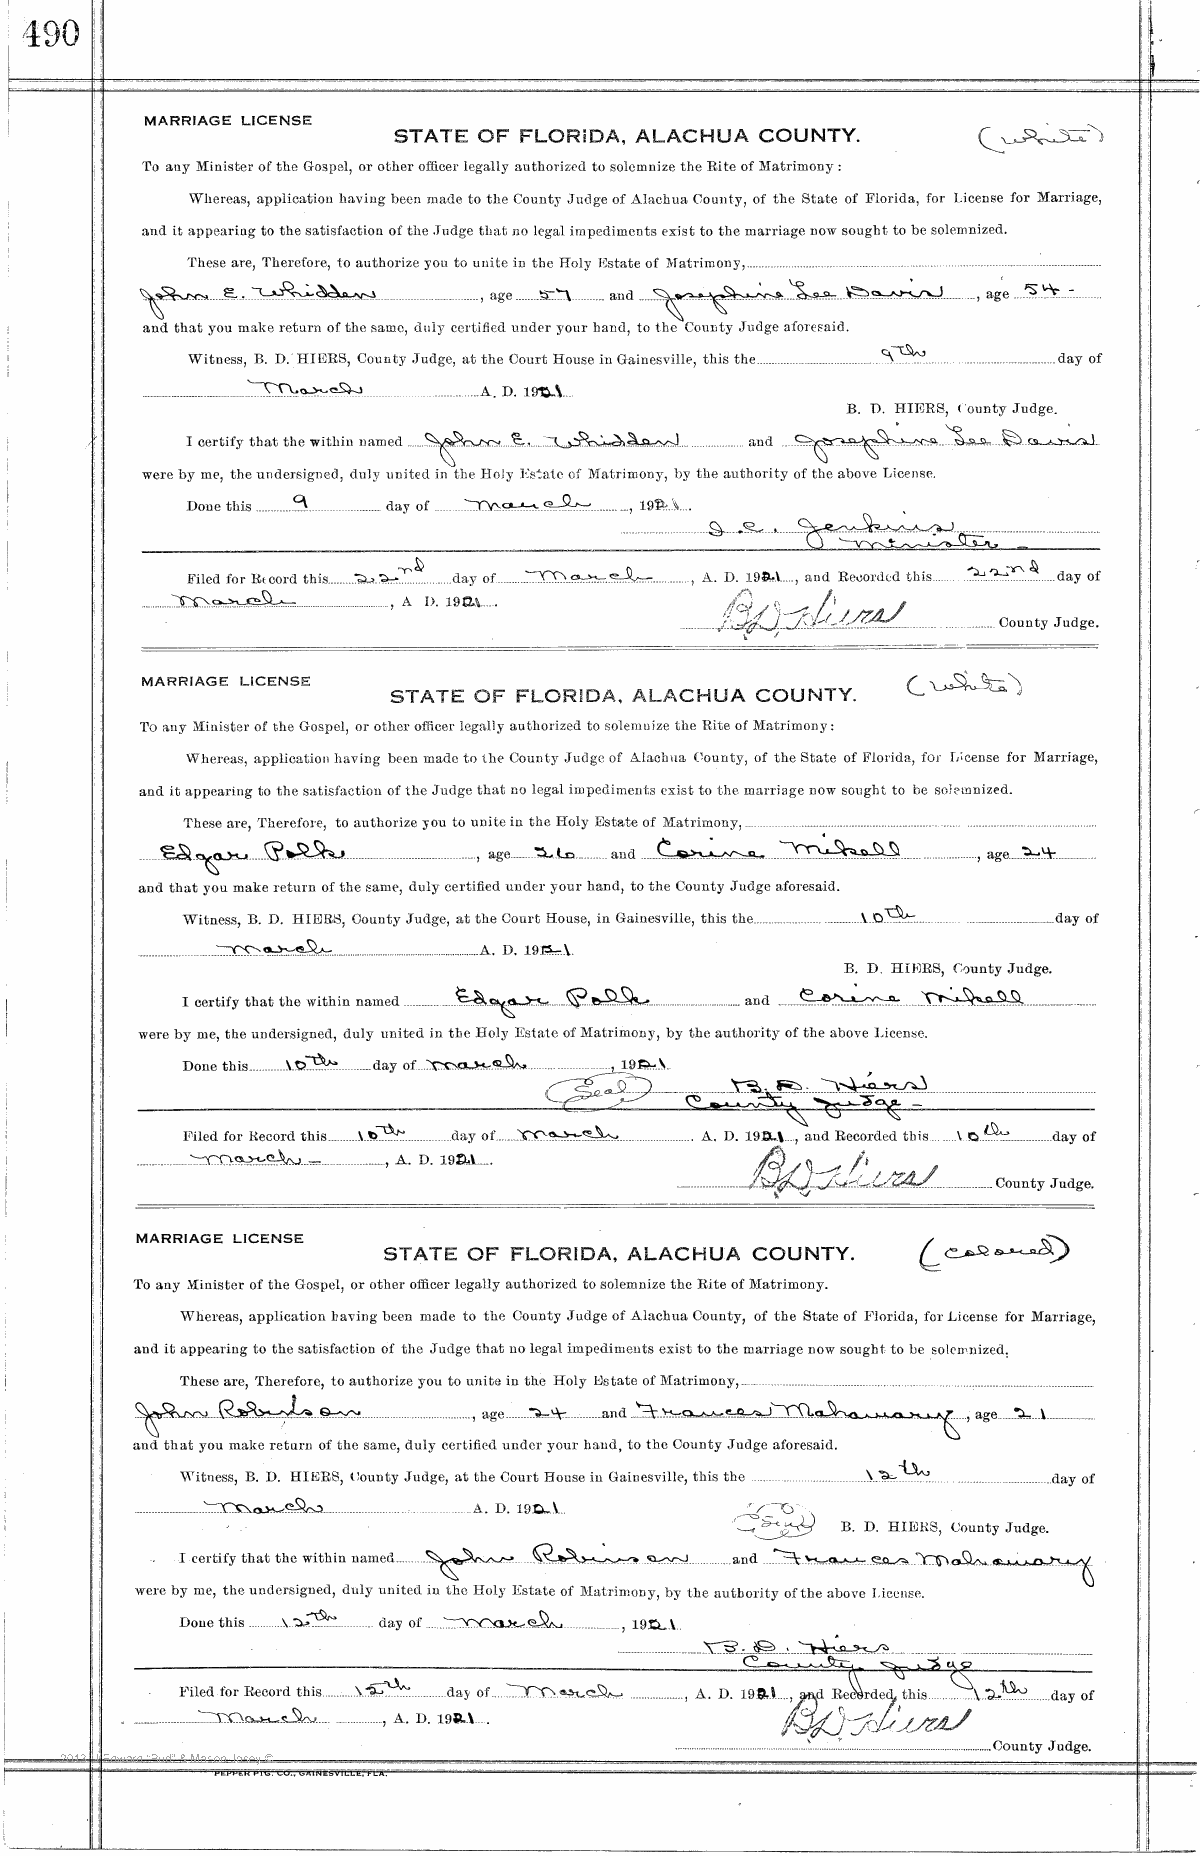 490
MARRIAGE LICENSE
STATE OF FLORIDA, ALACHUA COUNTY. (white)
To any Minister of the Gospel, or other officer legally authorized to solemnize the Rite of Matrimony:
Whereas, application having been made to the County Judge of Alachua County, of the State of Florida, for License for Marriage,
and it appearing to the satisfaction of the Judge that no legal impediments exist to the marriage now sought to be solemnized.
These are, Therefore, to authorize you to unite in the Holy Estate of Matrimony,
John E. Whidden, age 57 and Josephine Lee Davis, age 54-
and that you make return of the same, duly certified under your hand, to the County Judge aforesaid.
Witness, B. D. HIERS, County Judge, at the Court House in Gainesville, this the 9th day of
March A. D. 1921
B. D. HIERS, County Judge.
I certify that the within named John E. Whidden and Josephine Lee Davis
were by me, the undersigned, duly united in the Holy Estate of Matrimony, by the authority of the above License.
Done this 9 day of March, 1921.
I. C. Jenkins
Minister -
Filed for Record this 22nd day of March, A. D. 1921, and Recorded this 22nd day of
March, A D. 1921.
BD Hiers County Judge.
MARRIAGE LICENSE
STATE OF FLORIDA, ALACHUA COUNTY. (white)
To any Minister of the Gospel, or other officer legally authorized to solemnize the Rite of Matrimony:
Whereas, application having been made to the County Judge of Alachua County, of the State of Florida, for License for Marriage,
and it appearing to the satisfaction of the Judge that no legal impediments exist to the marriage now sought to be solemnized.
These are, Therefore, to authorize you to unite in the Holy Estate of Matrimony,
Edgar Polk, age 26 and Corine Mikell, age 24
and that you make return of the same, duly certified under your hand, to the County Judge aforesaid.
Witness, B. D. HIERS, County Judge, at the Court House, in Gainesville, this the 10th day of
March A. D. 1921
B. D. HIERS, County Judge.
I certify that the within named Edgar Polk and Corine Mikell
were by me, the undersigned, duly united in the Holy Estate of Matrimony, by the authority of the above License.
Done this 10th day of March, 1921
(Seal) B. D. Hiers
County Judge -
Filed for Record this 10th day of March A. D. 1921, and Recorded this 10th day of
March -, A. D. 1921.
BD Hiers County Judge.
MARRIAGE LICENSE
STATE OF FLORIDA, ALACHUA COUNTY. (colored)
To any Minister of the Gospel, or other officer legally authorized to solemnize the Rite of Matrimony.
Whereas, application having been made to the County Judge of Alachua County, of the State of Florida, for License for Marriage,
and it appearing to the satisfaction of the Judge that no legal impediments exist to the marriage now sought to be solemnized.
These are, Therefore, to authorize you to unite in the Holy Estate of Matrimony,
John Robinson, age 24 and Frances Mahawary, age 21
and that you make return of the same, duly certified under your hand, to the County Judge aforesaid.
Witness, B. D. HIERS, County Judge, at the Court House in Gainesville, this the 12th day of
March A. D. 1921
(Seal) B. D. HIERS, County Judge.
I certify that the within named John Robinson and Frances Mahawary
were by me, the undersigned, duly united in the Holy Estate of Matrimony, by the authority of the above License.
Done this 12th day of March, 1921
B. D. Hiers
County Judge
Filed for Record this 12th day of March, A. D. 1921, and Recorded this 12th day of
March, A. D. 1921.
BD Hiers County Judge.
PEPPER PTG. CO., GAINESVILLE, FLA.